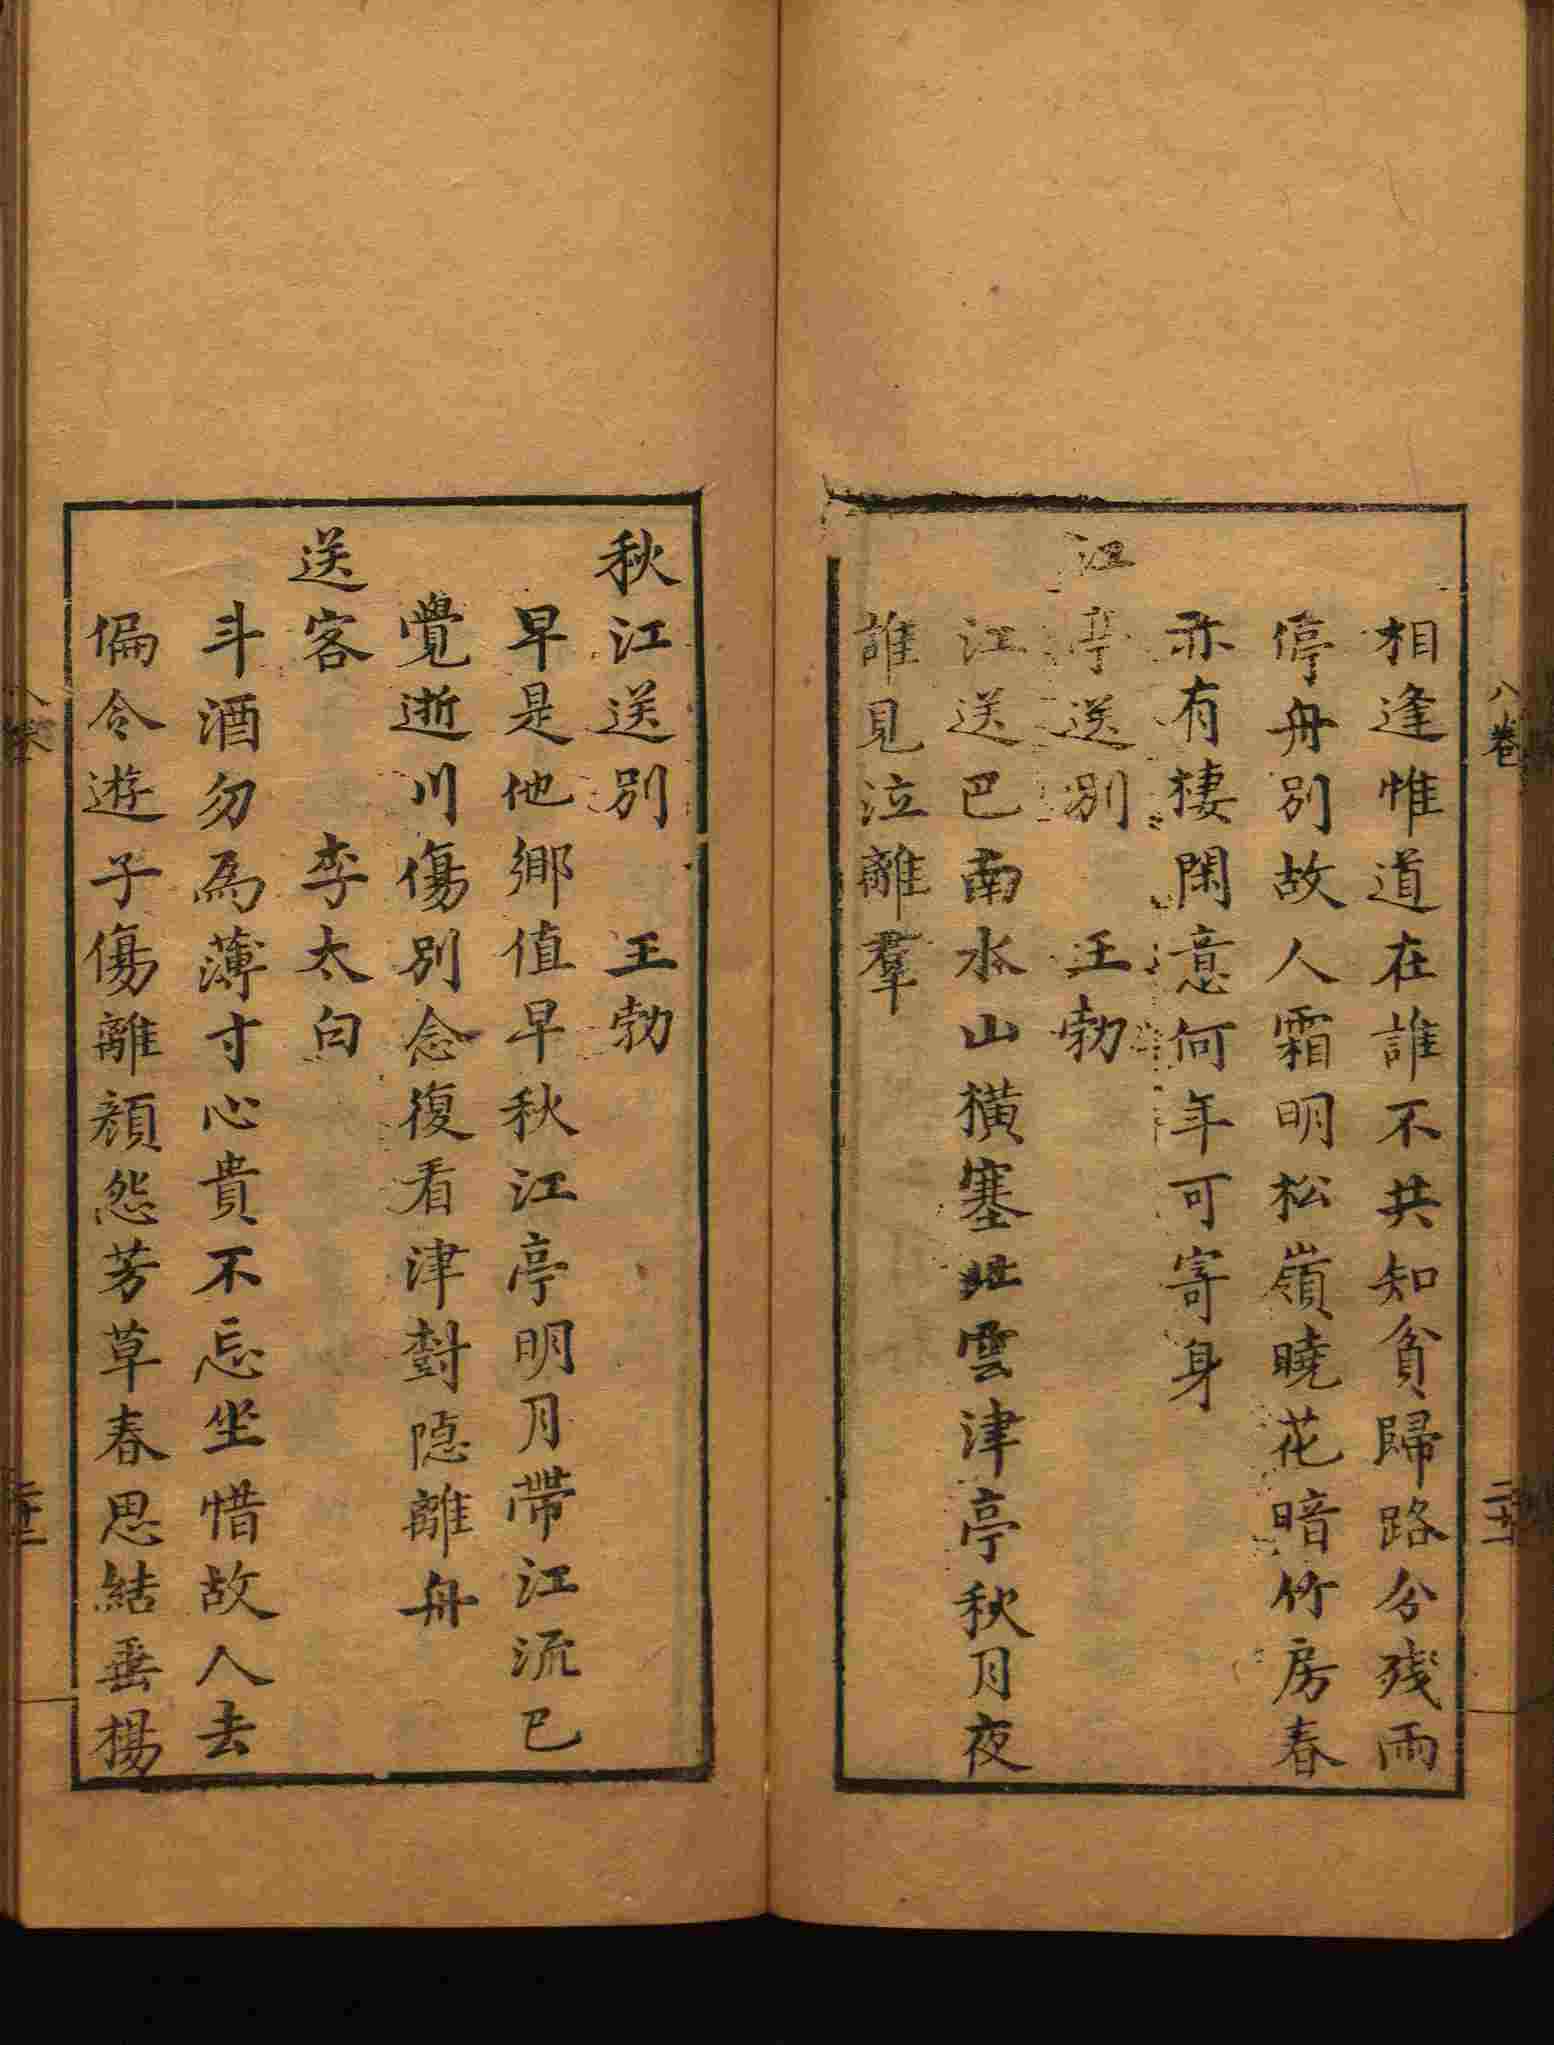 八卷
二十一
相逢惟道在誰不共知貧歸路分殘雨
停舟別故人霜明松嶺曉花暗竹房春
亦有棲閑意何年可寄身
江亭送別　王勃
江送巴南水山橫塞北雲津亭秋月夜
誰見泣離羣
秋江送別　王勃
早是他鄉值早秋江亭明月帶江流已
覺逝川傷別念復看津對隐離舟
送客　李太白
斗酒勿為薄寸心貴不忘坐惜故人去
偏令遊子傷離顏怨芳草春思結垂楊